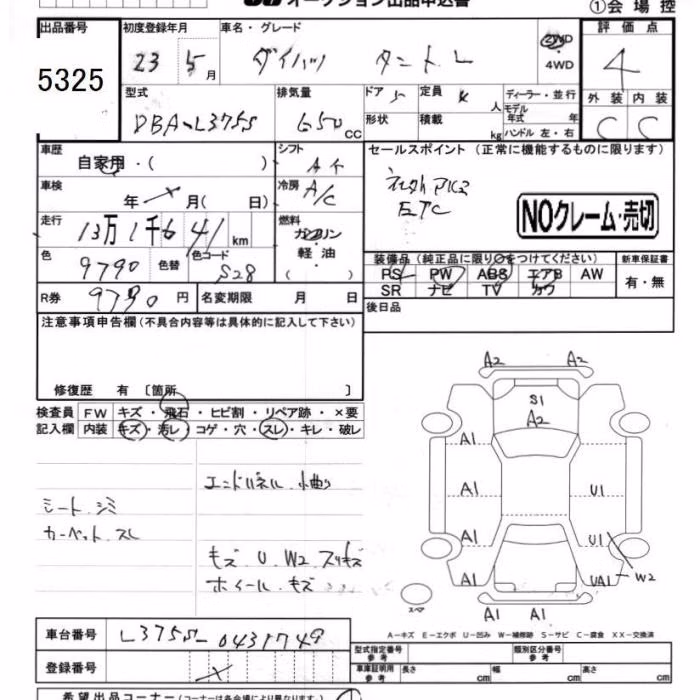 オークション出品申込書
①会場控
出品番号 初度登録年月 車名・グレード 評価点
5325 23 5月 ダイハツ タント L 2WD 4WD 4
型式 排気量 ドア 5 定員 4 人 ディーラー・並行 外装 内装
モデル年式 年式
DBA-L375S 650 cc 形状 積載 kg ハンドル 左・右 C C
車歴 自家用・( ) シフト A セールスポイント(正常に機能するものに限ります)
車検 年 月( 日) 冷房 A/C
ETC
NOクレーム・売切
走行 13万1千641 km 燃料 ガソリン・軽油・( )
装備品(純正品に限り○をつけてください) 新車保証書
色 9790 色替 色コード S28 PS PW ABS エアB AW 有・無
SR ナビ TV カワ
R券 9790 円 名変期限 月 日 後日品
注意事項申告欄(不具合内容等は具体的に記入して下さい)
修復歴 有〔箇所 〕
検査員 FW キズ・飛石・ヒビ割・リペア跡・×要
記入欄 内装 キズ・汚レ・コゲ・穴・スレ・キレ・破レ
エンドパネル 小曲り
シート シミ
カーペット スレ
キズ U W2 スリキズ
ホイール キズ
A2 A2
S1
A2
A1
A1 U1
A1 U1
A1 UA1 W2
スペア
A1 A1
A-キズ E-エクボ U-凹み W-補修跡 S-サビ C-腐食 XX-交換済
車台番号 L375S-0431749
型式指定番号 参考 類別区分番号 参考
登録番号
車庫証明用 参考 長さ cm 幅 cm 高さ cm
希望出品コーナー(コーナーは各会場により異なります)